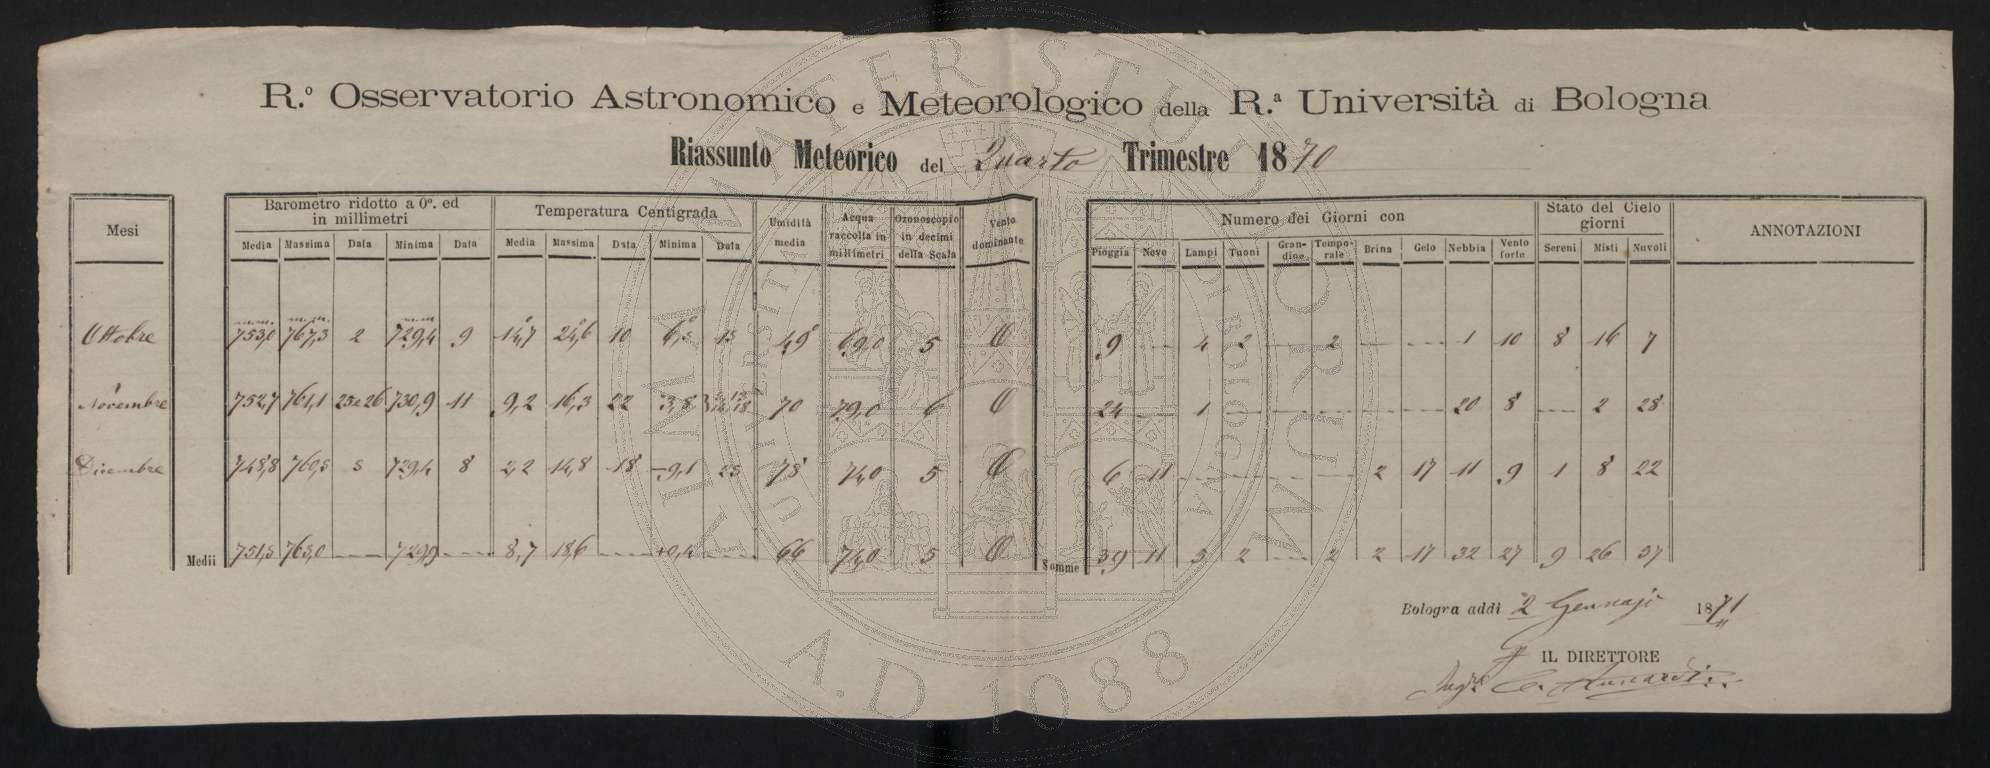 R.º Osservatorio Astronomico e Meteorologico della R.ª Università di Bologna
Riassunto Meteorico del Quarto Trimestre 1870
Mesi Barometro ridotto a 0º. ed in millimetri Temperatura Centigrada Umidità media Acqua raccolta in millimetri Ozonoscopio in decimi della Scala Vento dominante Numero dei Giorni con Stato del Cielo giorni ANNOTAZIONI
Media Massima Data Minima Data Media Massima Data Minima Data Pioggia Neve Lampi Tuoni Grandine Temporale Brina Gelo Nebbia Vento forte Sereni Misti Nuvoli
Ottobre 753,0 767,3 2 729,4 9 14,7 24,6 10 6,5 15 49 69,0 5 O 9 4 2 2 1 10 8 16 7
Novembre 752,7 761,1 25e26 730,9 11 9,2 16,3 22 3,8 70 79,0 6 O 24 1 20 8 2 28
Dicembre 748,8 760,5 5 729,4 8 2,2 14,8 18 -9,1 25 78 74,0 5 O 6 11 2 17 11 9 1 8 22
Medii 751,5 763,0 729,9 8,7 18,6 +0,4 66 74,0 5 O Somme 39 11 5 2 2 2 17 32 27 9 26 57
Bologna addì 2 Gennajo 1871
IL DIRETTORE
ALMA MATER STUDIORUM
UNIVERSITÀ DI BOLOGNA
A.D. 1088